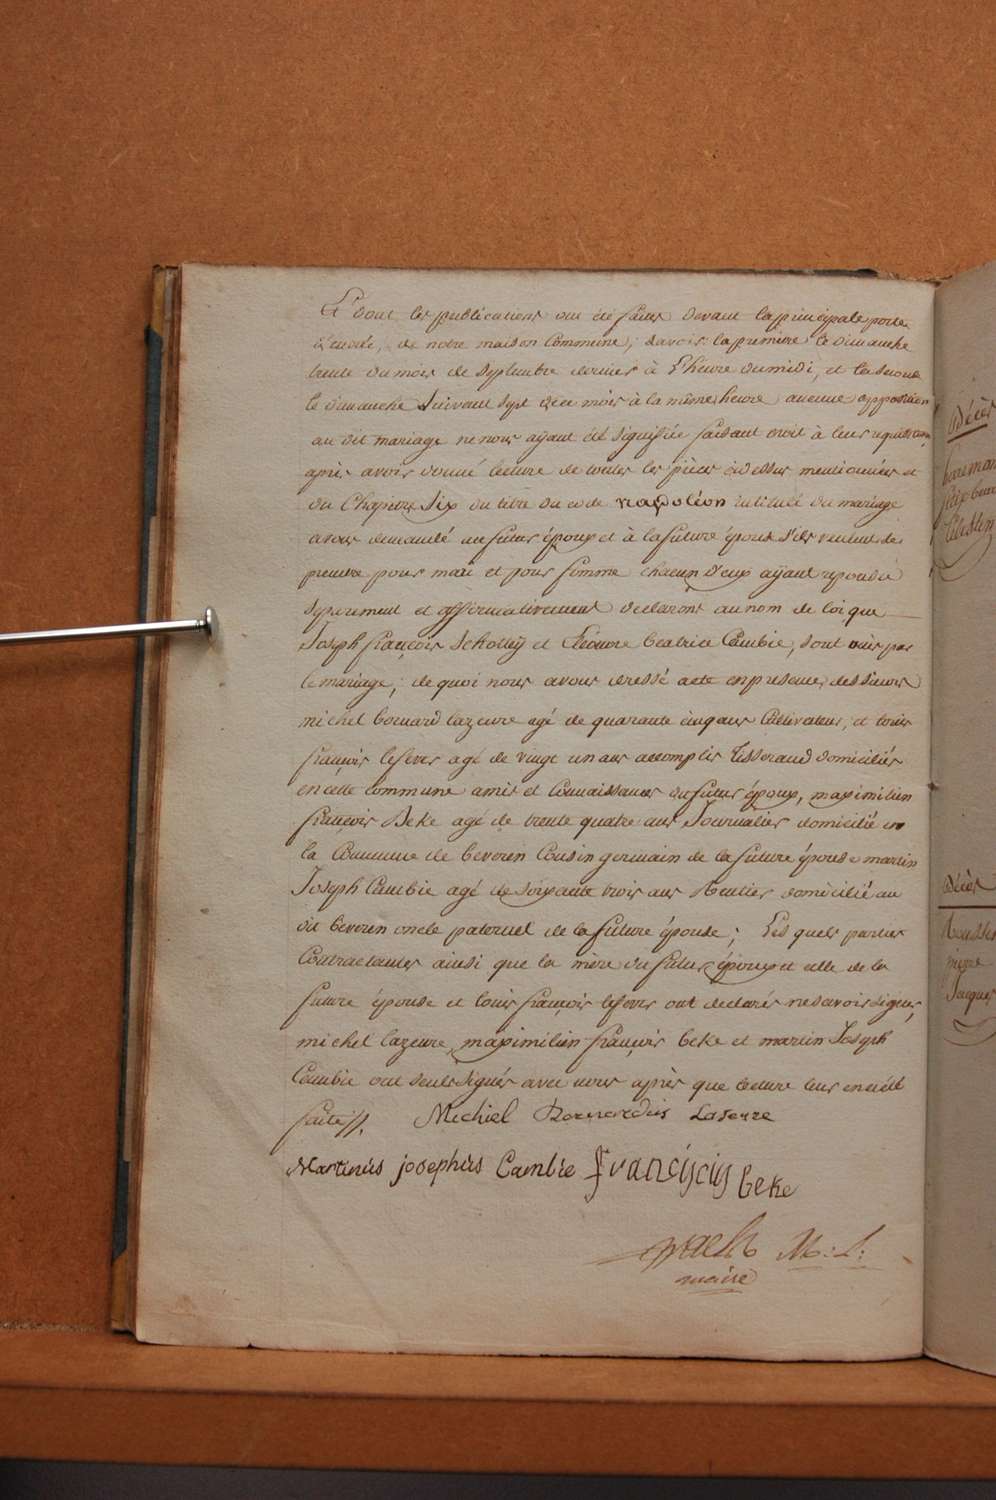 Et dont les publications ont été faites devant la principale porte
d'entrée, de notre maison Commune; savoir: la premiere le dimanche
trente du mois de Septembre dernier à l'heure du midi, et la seconde
le dimanche Suivant Sept dece mois à la même heure aucune opposition
au dit mariage ne nous aÿant été Signifiée faisant droit à leur requisition,
après avoir donné lecture de toutes les pièces cidessus mentionnées et
du Chapitre Six du titre du code napoléon intitulé du mariage
avons demandé au futur époux et à la future épouse s'ils veulent se
prendre pour mari et pour femme chacun d'eux aÿant repondu
séparément et affirmativement declarons au nom de loi, que
Joseph françois Scholleÿ et beatrice Cambie, sont unis par
le mariage; de quoi nous avons dressé acte en presence des sieurs
michel bernard lazeure agé de quarante cinq ans Cultivateur, et louis
françois lefever agé de vingt un ans accomplis Tisserand domiciliés
en cette commune amis et Connaissances du futur époux, maximilien
françois Beke agé de trente quatre ans Journalier domicilié en
la Commune de beveren Cousin germain de la future épouse martin
Joseph Cambie agé de soixante trois ans Rentier domicilié au
dit beveren oncle paternel de la future épouse; Les quels parties
Contractantes ainsi que la mère du futur époux et celle de la
future épouse et louis françois lefever ont declarés ne savoir signer,
michel lazeure, maximilien françois beke et martin Joseph
Cambie ont seuls signés avec nous après que lecture leur en a été
faite //. Michiel Bernardus Laseure
Martinus josephus Cambie franciscus beke
M: L:
maire
Décès
Décès
Jacques